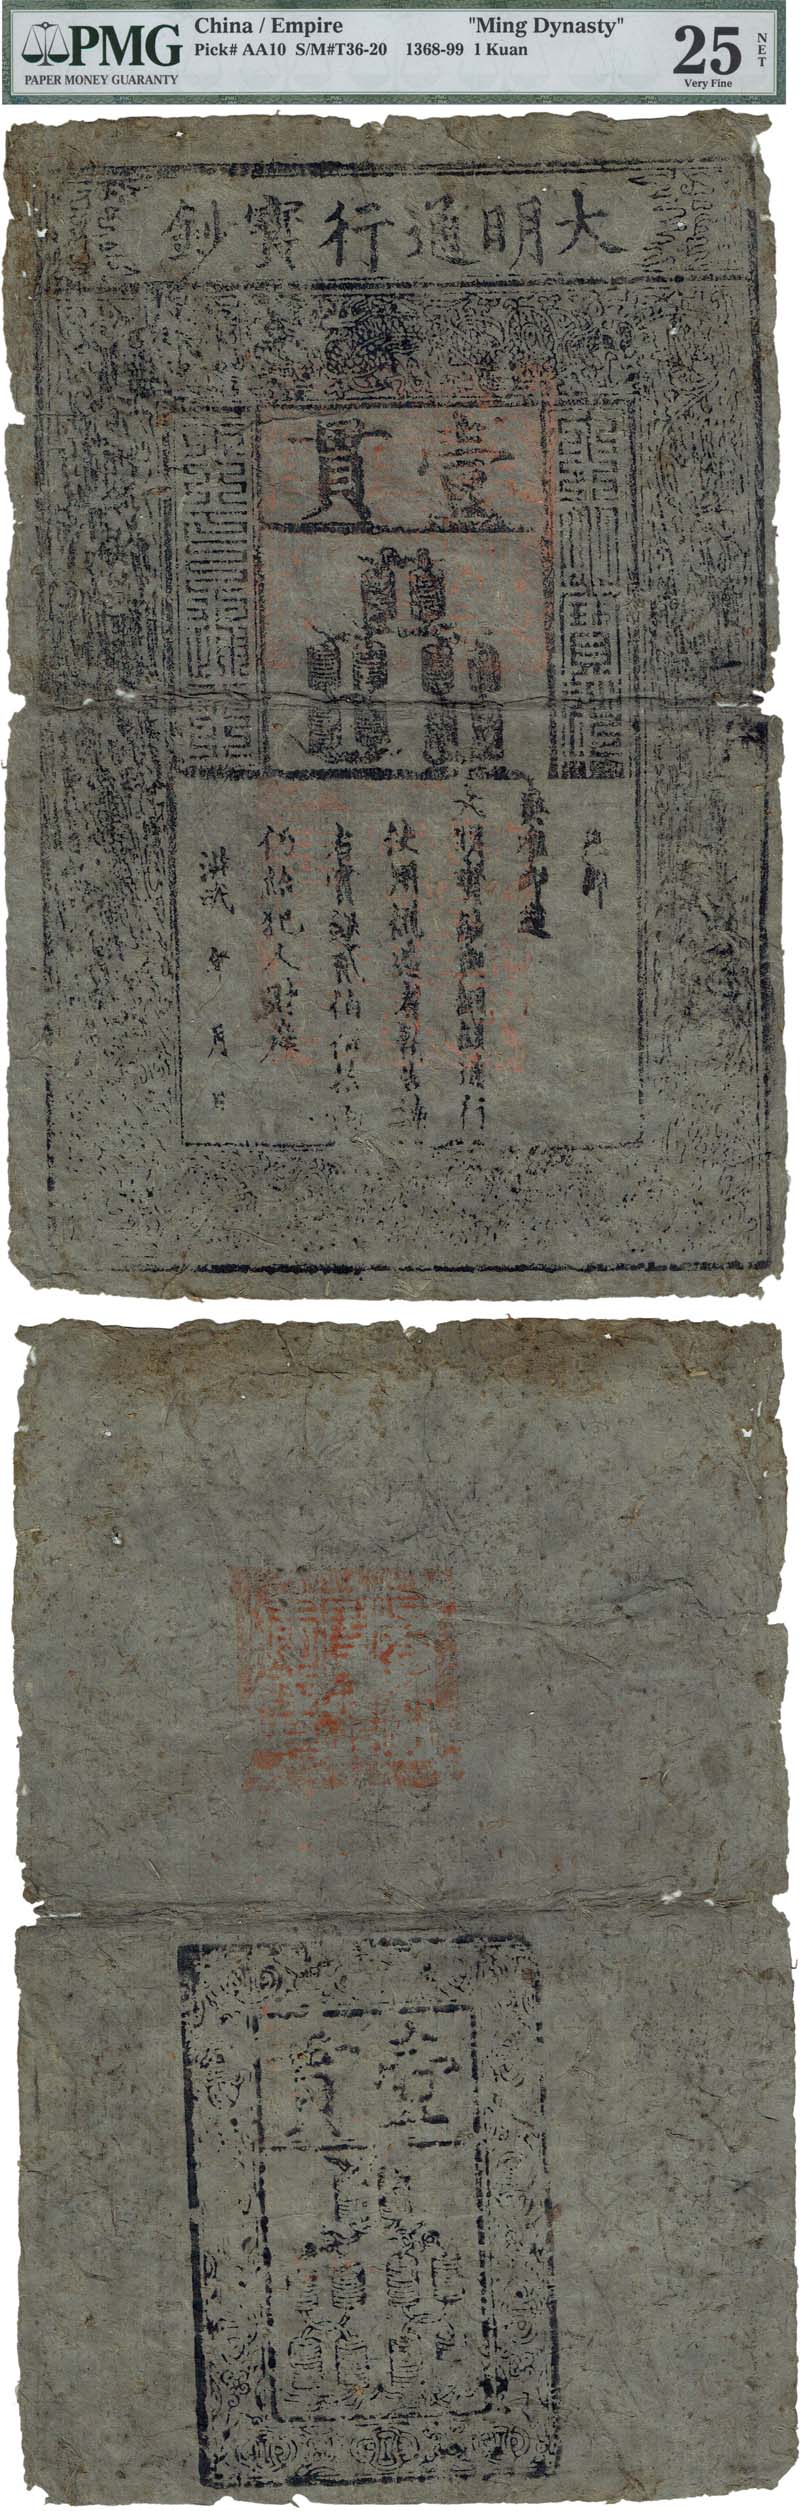 PMG
PAPER MONEY GUARANTY
China / Empire "Ming Dynasty"
Pick# AA10 S/M#T36-20 1368-99 1 Kuan
25
NET
Very Fine
大明通行寶鈔
壹貫
戶部
奏准印造
大明寶鈔與銅錢通行
使用偽造者斬告捕
者賞銀貳佰伍拾兩
仍給犯人財産
洪武 年 月 日